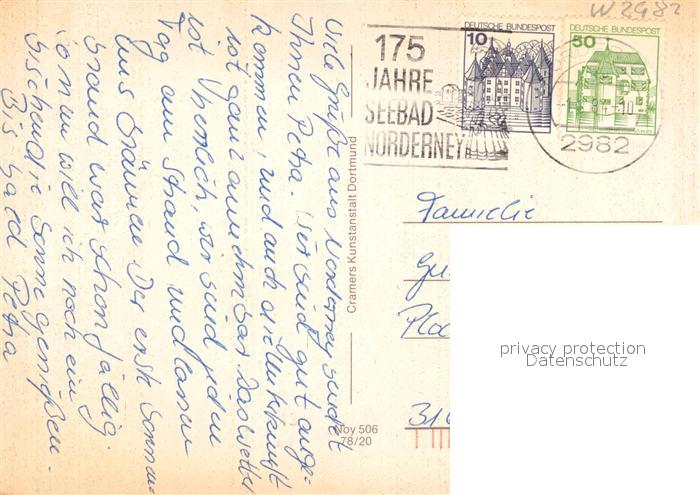 Viele Grüße aus Norderney sendet
Ihnen Petra. Wir sind gut ange-
kommen, und auch die Unterkunft
ist ganz annehmbar. Das Wetter
ist herrlich, wir sind jeden
Tag am Strand und lassen
uns bräunen. Der erste Sonnen-
brand war schon fällig.
So nun will ich noch ein
bischen die Sonne genießen.
Bis bald Petra
Cramers Kunstanstalt Dortmund
Noy 506
78/20
W 2982
DEUTSCHE BUNDESPOST
10
DEUTSCHE BUNDESPOST
50
175
JAHRE
SEEBAD
NORDERNEY
2982
Familie
privacy protection
Datenschutz